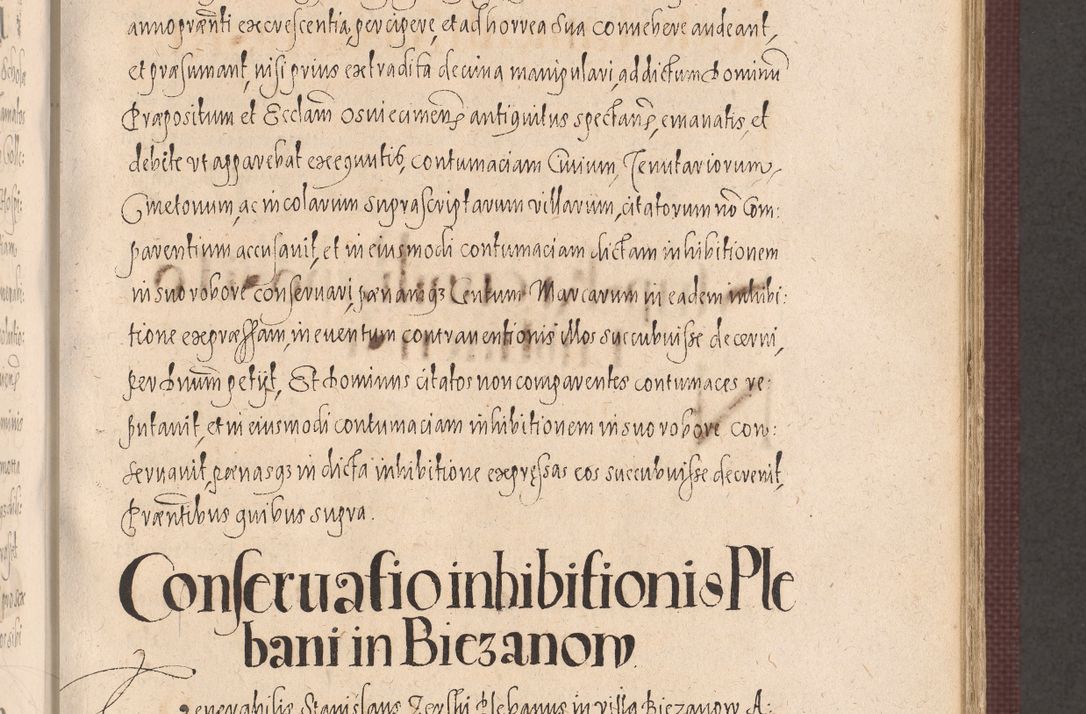 anno prænti excrescentia, percipere, et ad horrea sua convehere audeant,
et præsumant, nisi prius extradita decima manipulari, ad dictum dominũ
Præpositum et Ecclam̃ Osviecimen̄ antiquitus spectan̄, emanatis, et
debite ut apparebat exequutis, contumaciam Civium, Tenutariorum,
Cmetonum, ac incolarum suprascriptarum villarum, citatorum nõ Com:
parentium accusavit, et in eiusmodi contumaciam dictam inhibitionem
in suo robore conservari, pænamq3 Centum Marcarum in eadem inhibi:
tione expræssam, in eventum contraventionis illos succubuisse decerni,
per dnum petyt, Et dominus citatos non comparentes contumaces re:
putavit, et in eiusmodi contumaciam inhibitionem in suo robore con:
servavit, pænasq3 in dicta inhibitione expressas eos succubuisse decrevit,
Prænĩbus quibus supra.
Conservatio inhibitionis Ple
bani in Biezanow
enerabilis Stanislaus Plebanus in villa Biezanow A: